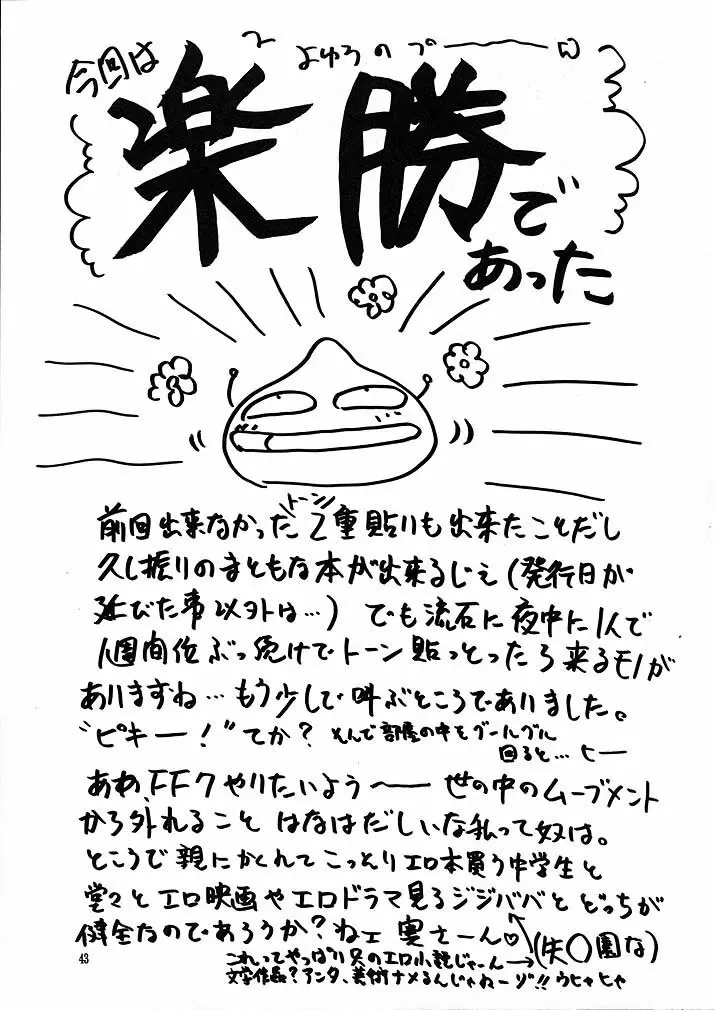 今回は
よゆうのプーーーw
楽勝で
あった
トーン
前回出来なかった2重貼りも出来たことだし
久し振りのまともな本が出来るじぇ(発行日が
延びた事以外は…)でも流石に夜中に1人で
1週間位ぶっ続けでトーン貼っとったら来るモノが
ありますね…もう少しで叫ぶところでありました。
“ピキー!”てか?そんで部屋の中をグールグル
回ると…ヒー
ああ、FF7やりたいよう〜〜世の中のムーブメント
から外れること はなはだしいな私って奴は。
ところで親にかくれてこっそりエロ本買う中学生と
堂々とエロ映画やエロドラマ見るジジババとどっちが
健全なのであろうか?ねェ奥さーん♡(失〇園な)
これってやっぱり只のエロ小説じゃーん→
文学作品?アンタ、美術ナメるんじゃねーゾ!!ウヒャヒャ
43